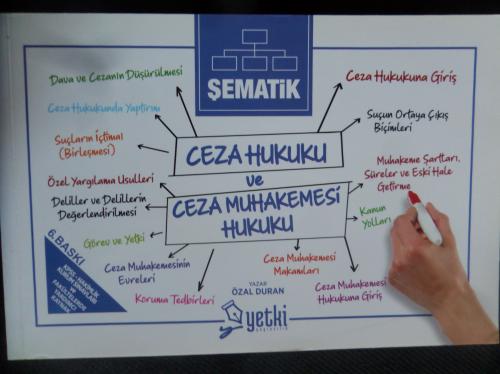 ŞEMATİK
Dava ve Cezanın Düşürülmesi
Ceza Hukukuna Giriş
Ceza Hukukunda Yaptırım
Suçun Ortaya Çıkış
Biçimleri
Suçların İçtimaı
(Birleşmesi)
CEZA HUKUKU
ve
CEZA MUHAKEMESİ
HUKUKU
Muhakeme Şartları,
Süreler ve Eski Hale
Getirme
Özel Yargılama Usulleri
Deliller ve Delillerin
Değerlendirilmesi
Kanun
Yolları
Görev ve Yetki
Ceza Muhakemesinin
Evreleri
Ceza Muhakemesi
Makamları
Koruma Tedbirleri
Ceza Muhakemesi
Hukukuna Giriş
6.BASKI
KPSS - HAKİMLİK
KURUM SINAVLARI
VE
FAKÜLTELERDE
YARDIMCI
KAYNAK
YAZAR
ÖZAL DURAN
yetki